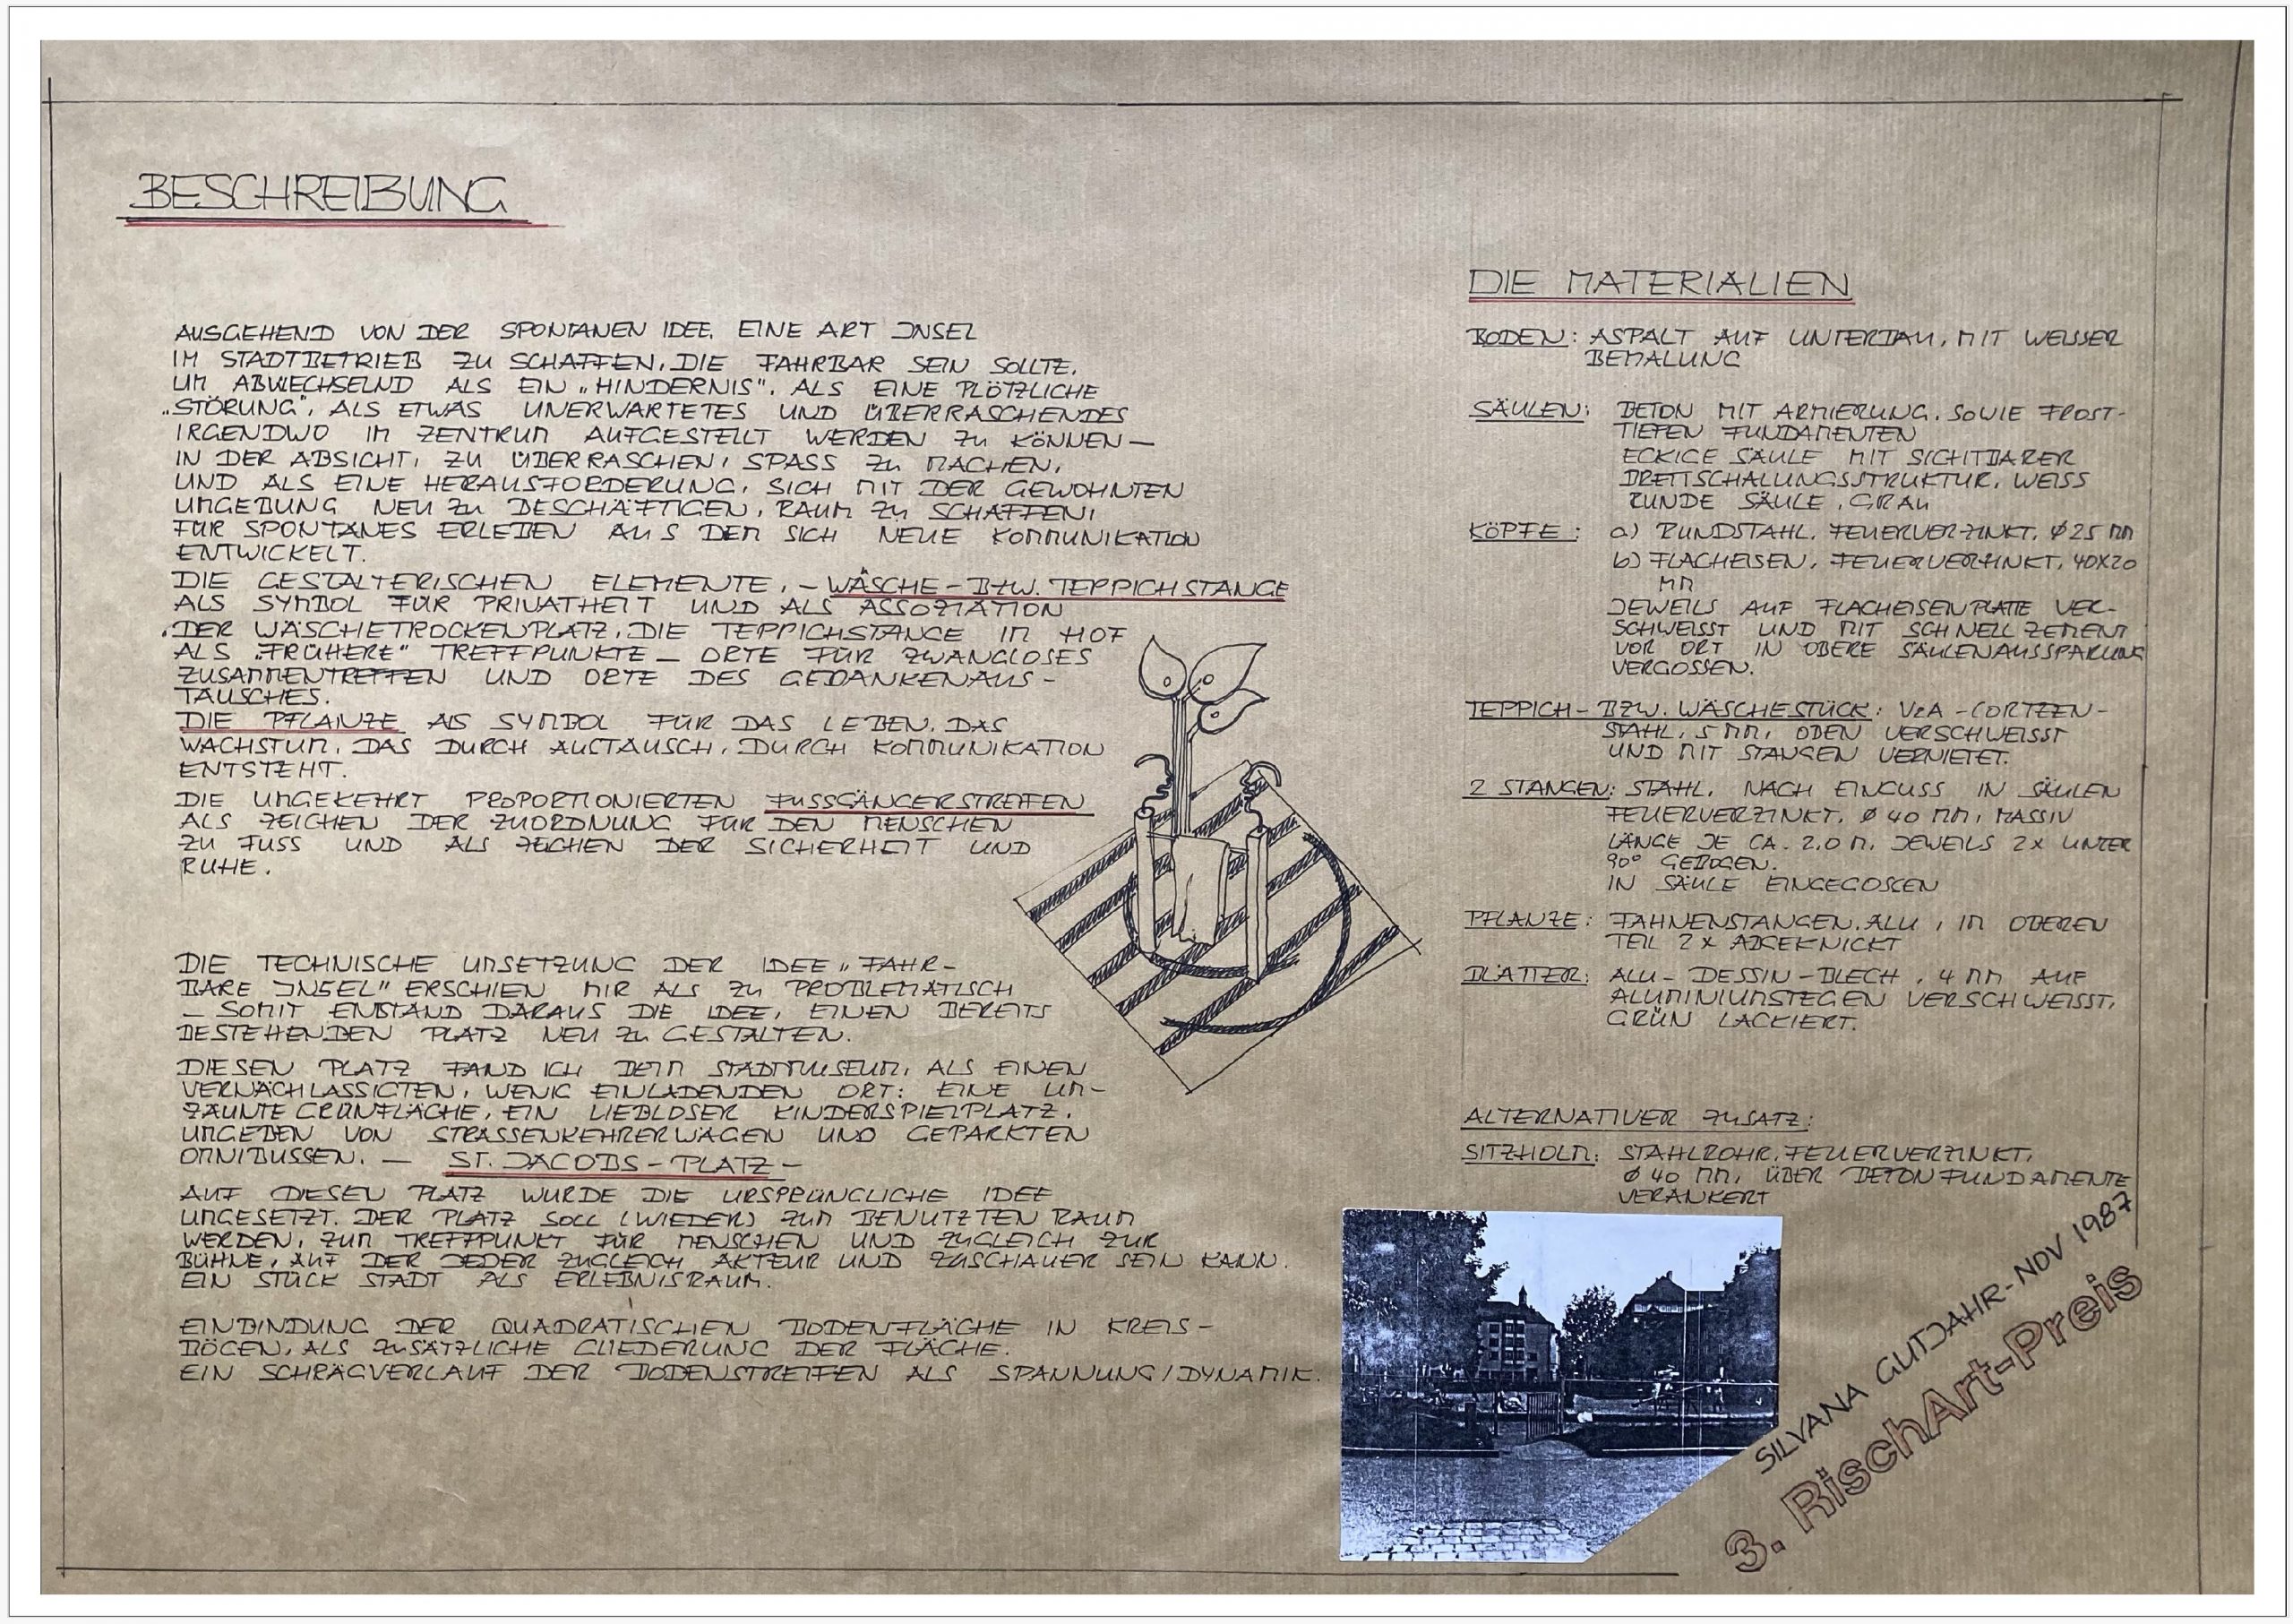 BESCHREIBUNG
AUSGEHEND VON DER SPONTANEN IDEE, EINE ART INSEL
IM STADTBETRIEB ZU SCHAFFEN, DIE FAHRBAR SEIN SOLLTE,
UM ABWECHSELND ALS EIN „HINDERNIS", ALS EINE PLÖTZLICHE
„STÖRUNG", ALS ETWAS UNERWARTETES UND ÜBERRASCHENDES
IRGENDWO IM ZENTRUM AUFGESTELLT WERDEN ZU KÖNNEN —
IN DER ABSICHT, ZU ÜBERRASCHEN, SPASS ZU MACHEN,
UND ALS EINE HERAUSFORDERUNG, SICH MIT DER GEWOHNTEN
UMGEBUNG NEU ZU BESCHÄFTIGEN, RAUM ZU SCHAFFEN,
FÜR SPONTANES ERLEBEN AUS DEM SICH NEUE KOMMUNIKATION
ENTWICKELT.
DIE GESTALTERISCHEN ELEMENTE, – WÄSCHE – BZW. TEPPICHSTANGE
ALS SYMBOL FÜR PRIVATHEIT UND ALS ASSOZIATION
DER WÄSCHETROCKENPLATZ, DIE TEPPICHSTANGE IM HOF
ALS „FRÜHERE" TREFFPUNKTE – ORTE FÜR ZWANGLOSES
ZUSAMMENTREFFEN UND ORTE DES GEDANKENAUS-
TAUSCHES.
DIE PFLANZE ALS SYMBOL FÜR DAS LEBEN, DAS
WACHSTUM, DAS DURCH AUSTAUSCH, DURCH KOMMUNIKATION
ENTSTEHT.
DIE UMGEKEHRT PROPORTIONIERTEN FUSSGÄNGERSTREIFEN
ALS ZEICHEN DER ZUORDNUNG FÜR DEN MENSCHEN
ZU FUSS UND ALS ZEICHEN DER SICHERHEIT UND
RUHE.
DIE TECHNISCHE UMSETZUNG DER IDEE „FAHR-
BARE INSEL" ERSCHIEN MIR ALS ZU PROBLEMATISCH
– SOMIT ENTSTAND DARAUS DIE IDEE, EINEN BEREITS
BESTEHENDEN PLATZ NEU ZU GESTALTEN.
DIESEN PLATZ FAND ICH BEIM STADTMUSEUM, ALS EINEN
VERNACHLÄSSIGTEN, WENIG EINLADENDEN ORT: EINE UM-
ZÄUNTE GRÜNFLÄCHE, EIN LIEBLOSER KINDERSPIELPLATZ,
UMGEBEN VON STRASSENKEHRERWÄGEN UND GEPARKTEN
OMNIBUSSEN. — ST. JACOBS – PLATZ –
AUF DIESEN PLATZ WURDE DIE URSPRÜNGLICHE IDEE
UMGESETZT. DER PLATZ SOLL (WIEDER) ZUM BENUTZTEN RAUM
WERDEN, ZUM TREFFPUNKT FÜR MENSCHEN UND ZUGLEICH ZUR
BÜHNE, AUF DER JEDER ZUGLEICH AKTEUR UND ZUSCHAUER SEIN KANN.
EIN STÜCK STADT ALS ERLEBNISRAUM.
EINBINDUNG DER QUADRATISCHEN BODENFLÄCHE IN KREIS-
BÖGEN, ALS ZUSÄTZLICHE GLIEDERUNG DER FLÄCHE.
EIN SCHRÄGVERLAUF DER BODENSTREIFEN ALS SPANNUNG/DYNAMIK.
DIE MATERIALIEN
BODEN: ASPALT AUF UNTERBAU, MIT WEISSER
BEMALUNG
SÄULEN: BETON MIT ARMIERUNG, SOWIE FROST-
TIEFEN FUNDAMENTEN
ECKIGE SÄULE MIT SICHTBARER
BRETTSCHALUNGSSTRUKTUR, WEISS
RUNDE SÄULE, GRAU
KÖPFE: a) RUNDSTAHL, FEUERVERZINKT, Ø 25 MM
b) FLACHEISEN, FEUERVERZINKT, 40X20
MM
JEWEILS AUF FLACHEISENPLATTE VER-
SCHWEISST UND MIT SCHNELLZEMENT
VOR ORT IN OBERE SÄULENAUSSPARUNG
VERGOSSEN.
TEPPICH – BZW. WÄSCHESTÜCK: V2A – CORTZEN-
STAHL, 5 MM, OBEN VERSCHWEISST
UND MIT STANGEN VERNIETET.
2 STANGEN: STAHL, NACH EINGUSS IN SÄULEN
FEUERVERZINKT, Ø 40 MM, MASSIV
LÄNGE JE CA. 2,0 M, JEWEILS 2X UNTER
90° GEBOGEN.
IN SÄULE EINGEGOSSEN
PFLANZE: FAHNENSTANGEN, ALU, IM OBEREN
TEIL 2X ABGEKNICKT
BLÄTTER: ALU – DESSIN – BLECH, 4 MM AUF
ALUMINIUMSTEGEN VERSCHWEISST,
GRÜN LACKIERT.
ALTERNATIVER ZUSATZ:
SITZHOLM: STAHLROHR, FEUERVERZINKT,
Ø 40 MM, ÜBER BETONFUNDAMENTE
VERANKERT
SILVANA GUTJAHR – NOV 1987
3. RischArt-Preis